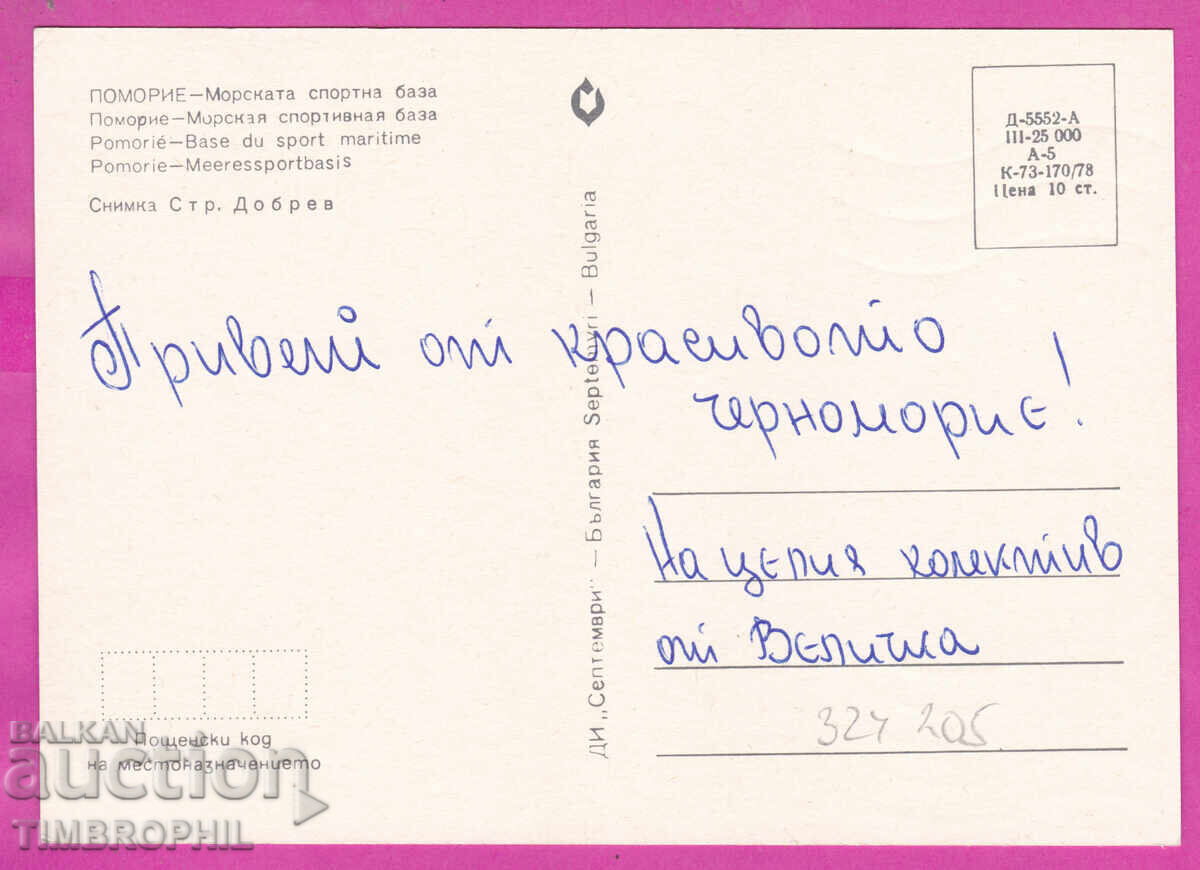 ПОМОРИЕ—Морската спортна база
Поморие—Морская спортивная база
Pomorié—Base du sport maritime
Pomorie—Meeressportbasis
Снимка Стр. Добрев
Д-5552-А
III-25 000
А-5
К-73-170/78
Цена 10 ст.
ДИ „Септември" — България Septemvri — Bulgaria
Привет от красивото
черноморие!
На целия колектив
от Величка
324 205
Пощенски код
на местоназначението
BALKAN
auction
TIMBROPHIL